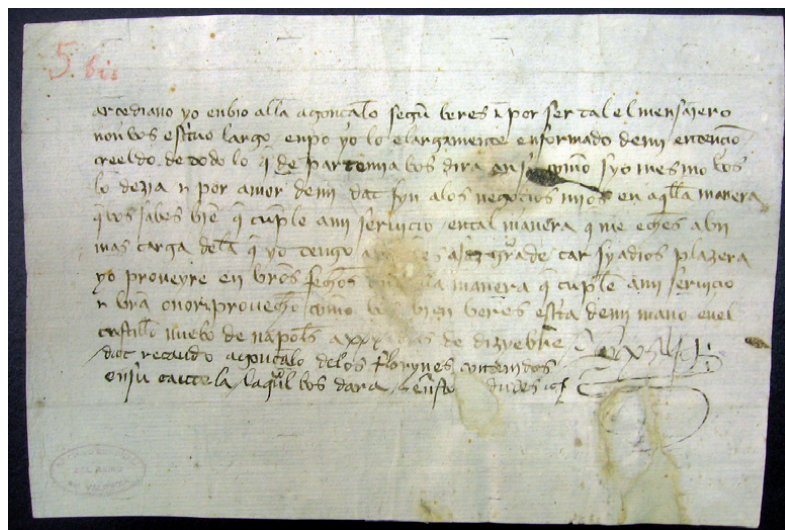 5. bis
arcediano yo enbio alla a gonçalo segũ veres τ por ser tal el mensajero
non vos escriuo largo enpo yo lo e largamente enformado de mi entenciõ
creeldo de todo lo q̃ de parte mia vos dira ansi como sy yo mesmo vos
lo dezia τ por amor de mi dat fyn a los negocios mios en aq̃lla manera
q̃ vos sabes bien q̃ cũple a mi seruicio en tal manera q me eches avn
mas carga dela q̃ yo tengo grãde car sy a dios plazera
yo proueyre en vros fechos manera q̃ cũple a mi seruicio
τ vra onor τ prouecho como vos bien veres escrita de mi mano en el
castillo nuebo de napols a xxx dias de dizienbre
dat recaudo a gonçalo delos florynes contenidos
en su cautela laqual vos dara